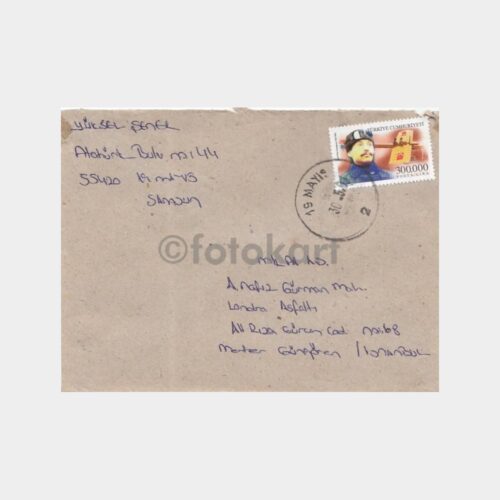 YÜKSEL ŞENEL
Atatürk Bulv no: 44
55420 19 MAYIS
SAMSUN
TÜRKİYE CUMHURİYETİ
300.000
19 MAYIS
30
2
©fotokart
A. Nafiz Gürman Mah.
Londra Asfaltı
Ali Rıza Gürcan Cad. no: 68
Merter Güngören / İSTANBUL